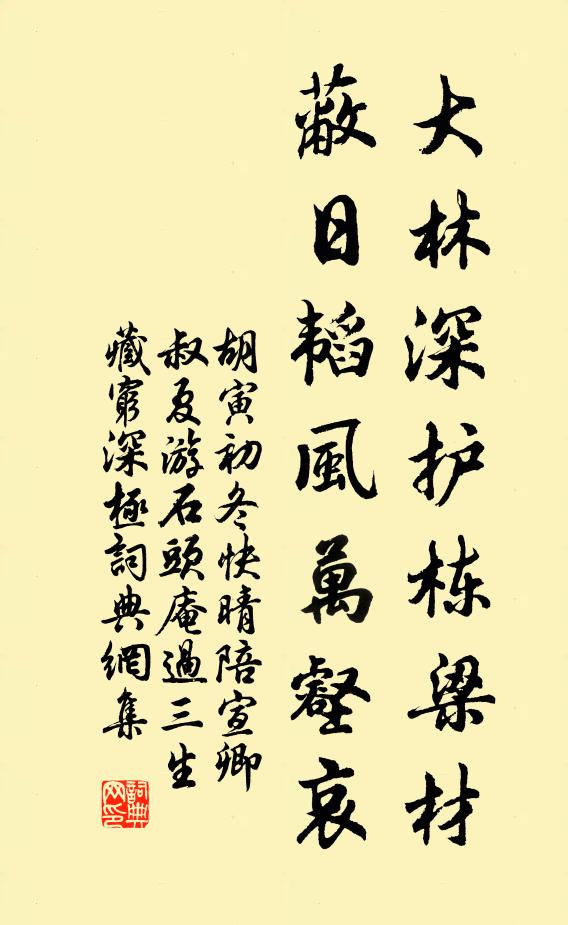 大林深护栋梁材
蔽日韬風萬壑哀
胡寅初冬快晴陪宣卿
叔夏游石頭庵過三生
藏窮深極詞典網集
詞典
网印